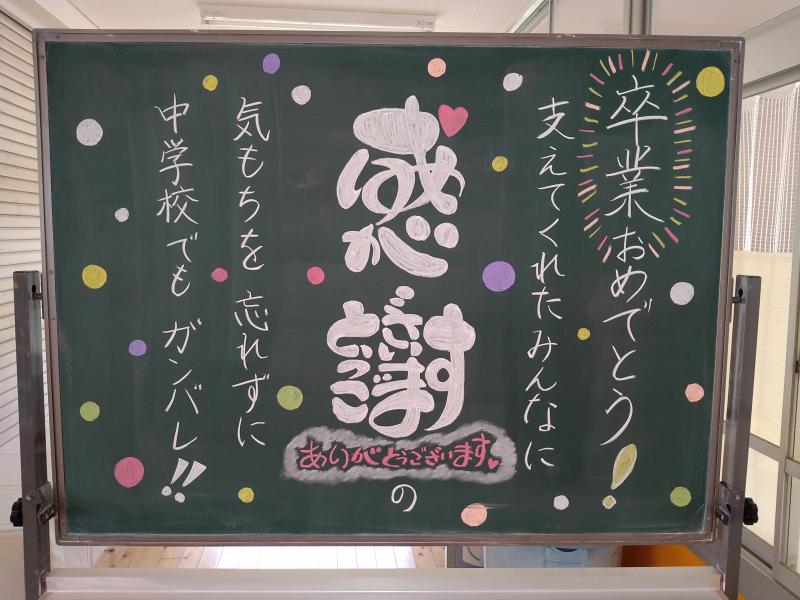 卒業おめでとう!
支えてくれたみんなに
感謝
ありがとうございます
の
気もちを 忘れずに
中学校でも ガンバレ!!